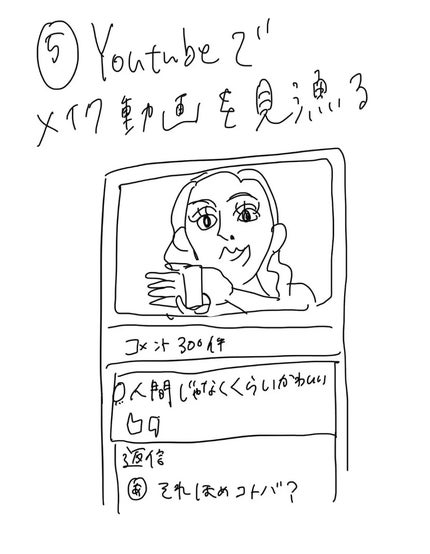 ⑤Youtubeで
メイク動画を見漁る
コメント300件
人間じゃなくくらいかわいい
返信
あ それほめコトバ?